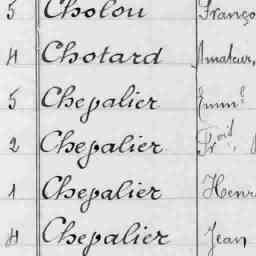 5 Cholou Franço
4 Chotard Amateur,
5 Chevalier Emm.
2 Chevalier
1 Chevalier Henr
4 Chevalier Jean